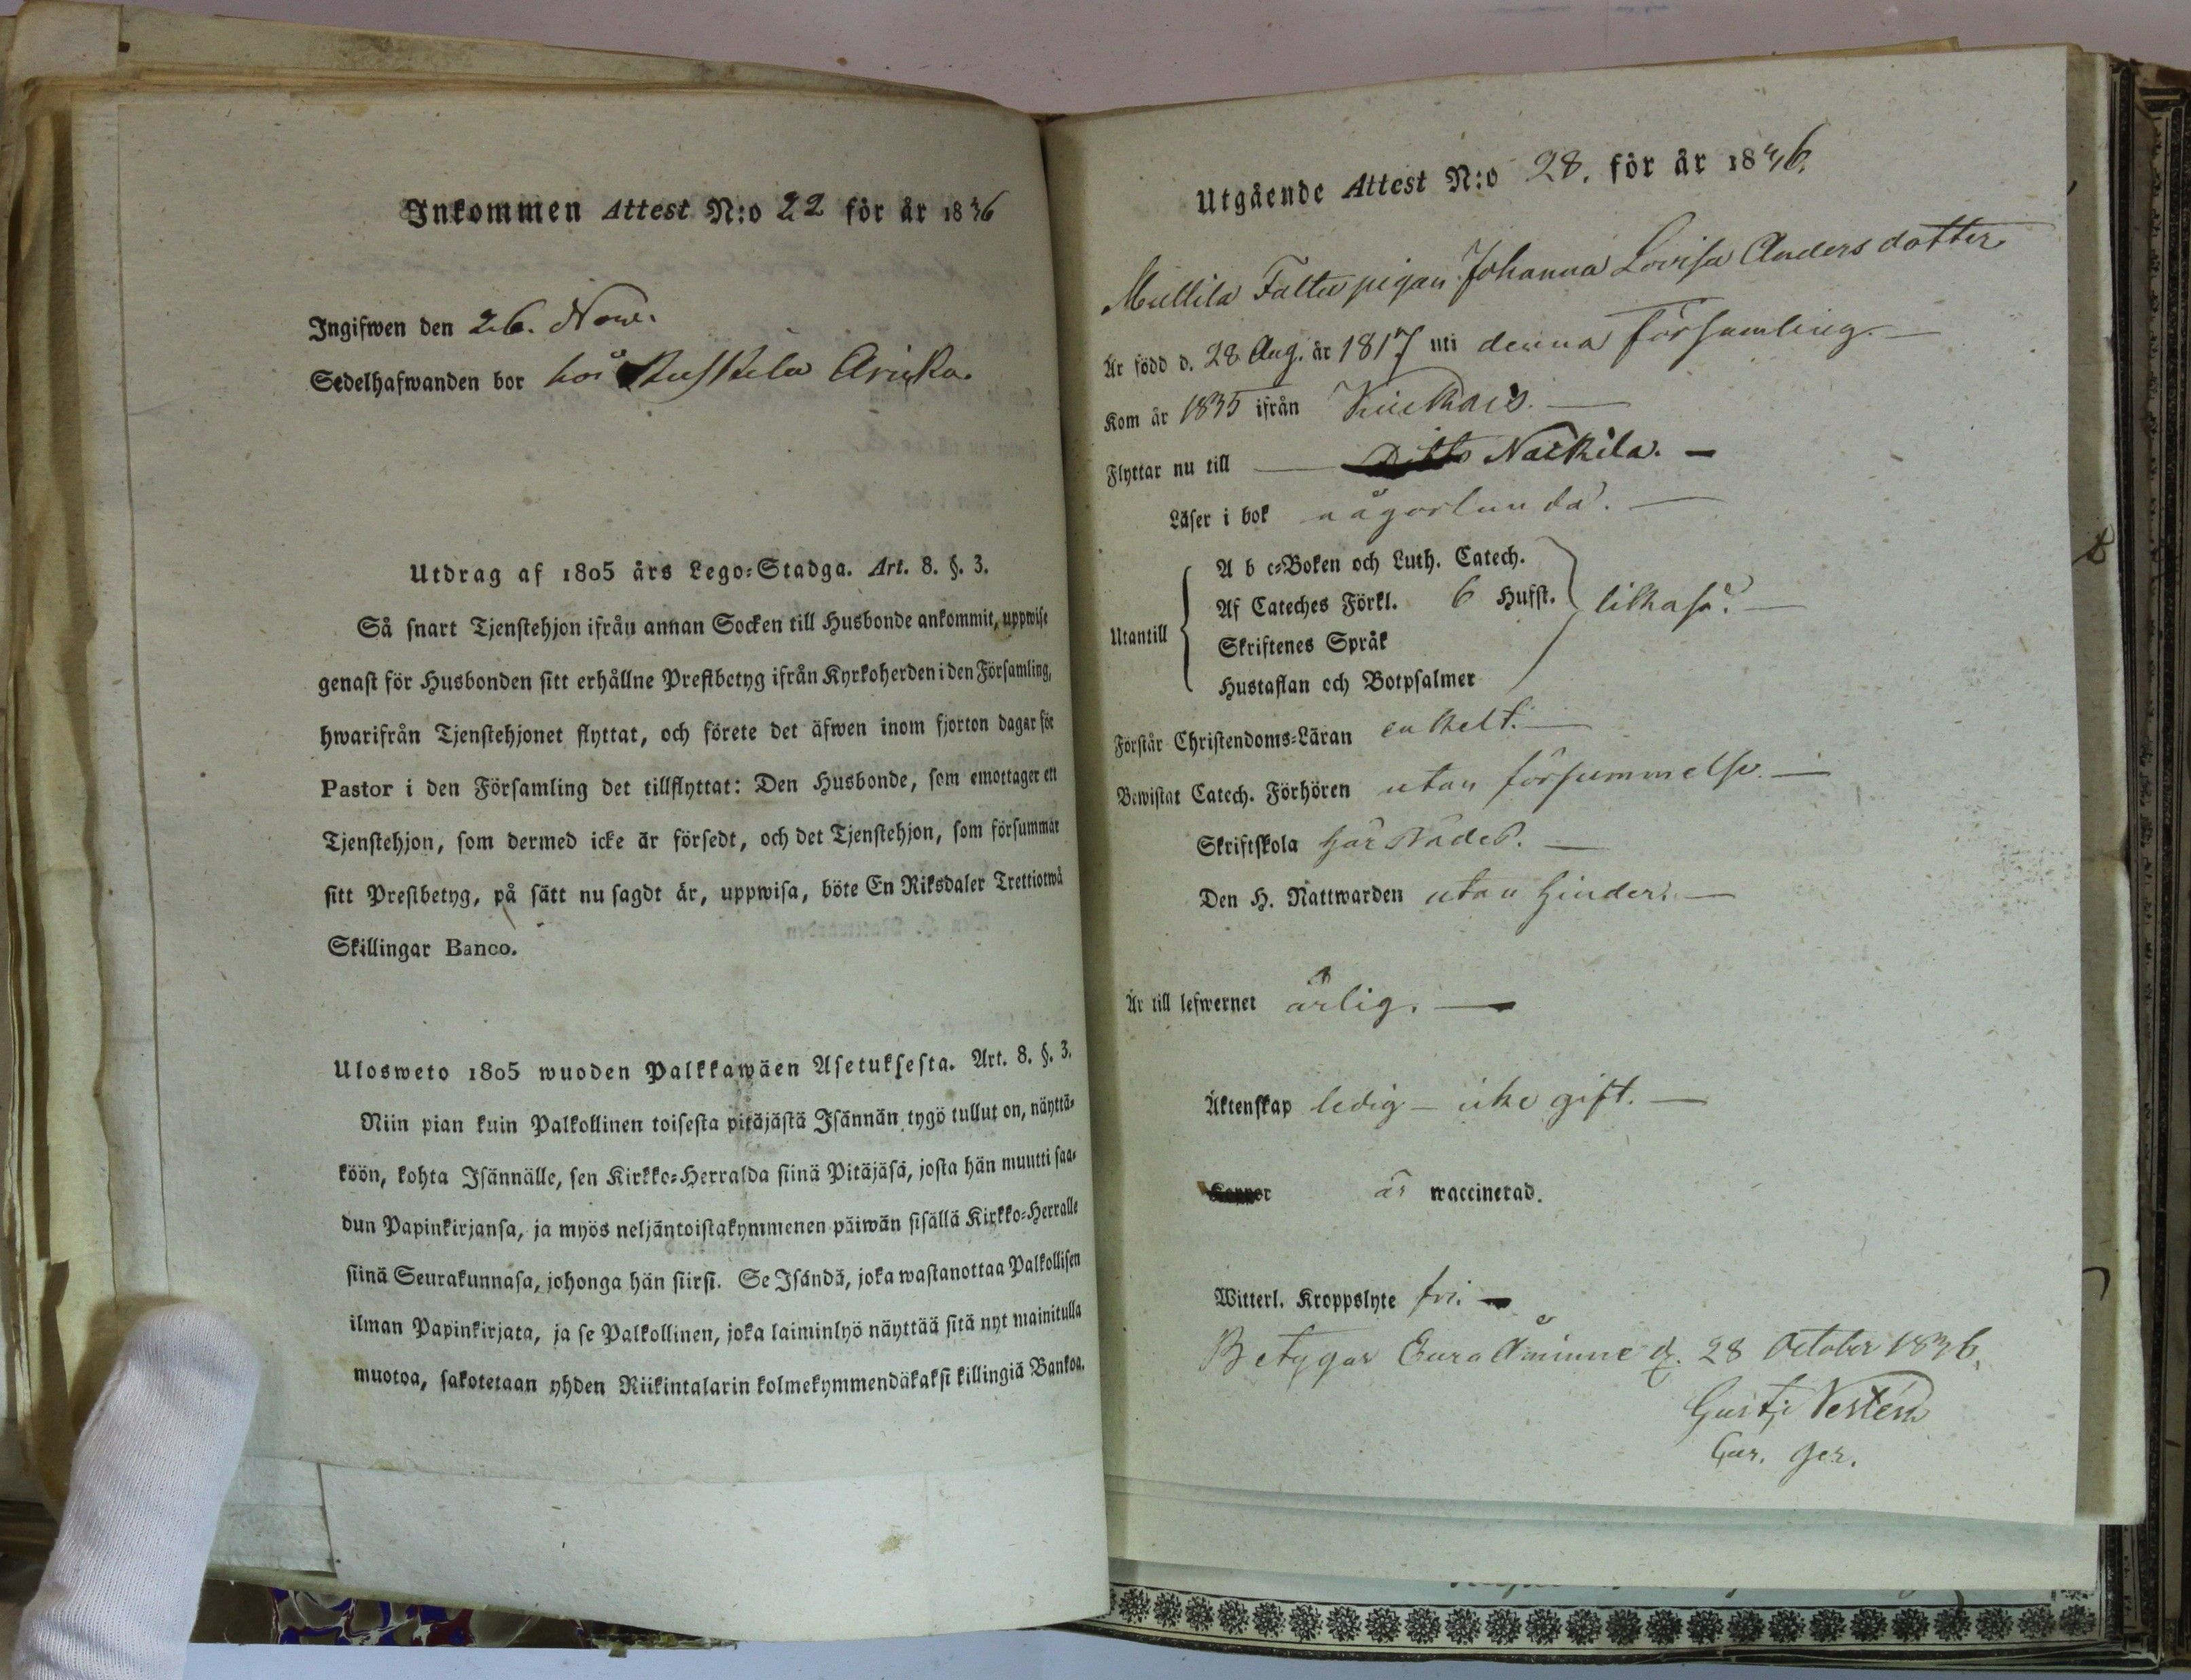 Inkommen Attest N:o 22 för år 1836
Ingifwen den 26. Now.
Sedelhafwanden bor hos
Utdrag af 1805 års Lego-Stadga. Art. 8. §. 3.
Så snart Tjenstehjon ifrån annan Socken till Husbonde ankommit, uppwise
genast för Husbonden sitt erhållne Prestbetyg ifrån Kyrkoherden i den Församling,
hwarifrån Tjenstehjonet flyttat, och förete det äfwen inom fjorton dagar för
Pastor i den Församling det tillflyttat: Den Husbonde, som emottager ett
Tjenstehjon, som dermed icke är försedt, och det Tjenstehjon, som försummar
sitt Prestbetyg, på sätt nu sagdt är, uppwisa, böte En Riksdaler Trettiotwå
Skillingar Banco.
Ulosweto 1805 wuoden Palkkawäen Asetuksesta. Art. 8. §. 3.
Niin pian kuin Palkollinen toisesta pitäjästä Isännän tygö tullut on, näyttä-
köön, kohta Isännälle, sen Kirkko-Herralda siinä Pitäjäsä, josta hän muutti saa-
dun Papinkirjansa, ja myös neljäntoistakymmenen päiwän sisällä Kirkko-Herralle
siinä Seurakunnasa, johonga hän siirsi. Se Isändä, joka wastanottaa Palkollisen
ilman Papinkirjata, ja se Palkollinen, joka laiminlyö näyttää sitä nyt mainitulla
muotoa, sakotetaan yhden Riikintalarin kolmekymmendäkaksi killingiä Bankoa.
Utgående Attest N:o 28. för år 1836.
Mullila Fattigpigan Johanna Lovisa Andersdotter
Är född d. 28 Aug. år 1817 uti denna Församling.
Kom år 1835 ifrån Kiukais.
Flyttar nu till Ditto Nackila.
Läser i bok någorlunda.
Utantill
A b c-Boken och Luth. Catech.
Af Cateches Förkl. 6 Hufst. likaså.
Skriftenes Språk
Hustaflan och Botpsalmer
Förstår Christendoms-Läran enkelt.
Bewistat Catech. Förhören utan försummelse.
Skriftskola härstädes.
Den H. Nattwarden utan hinder.
Är till lefwernet ärlig.
Äktenskap ledig - icke gift.
Koppor är waccinerad.
Witterl. Kroppslyte fri.
Betygar Eura Åminne d. 28 October 1836.